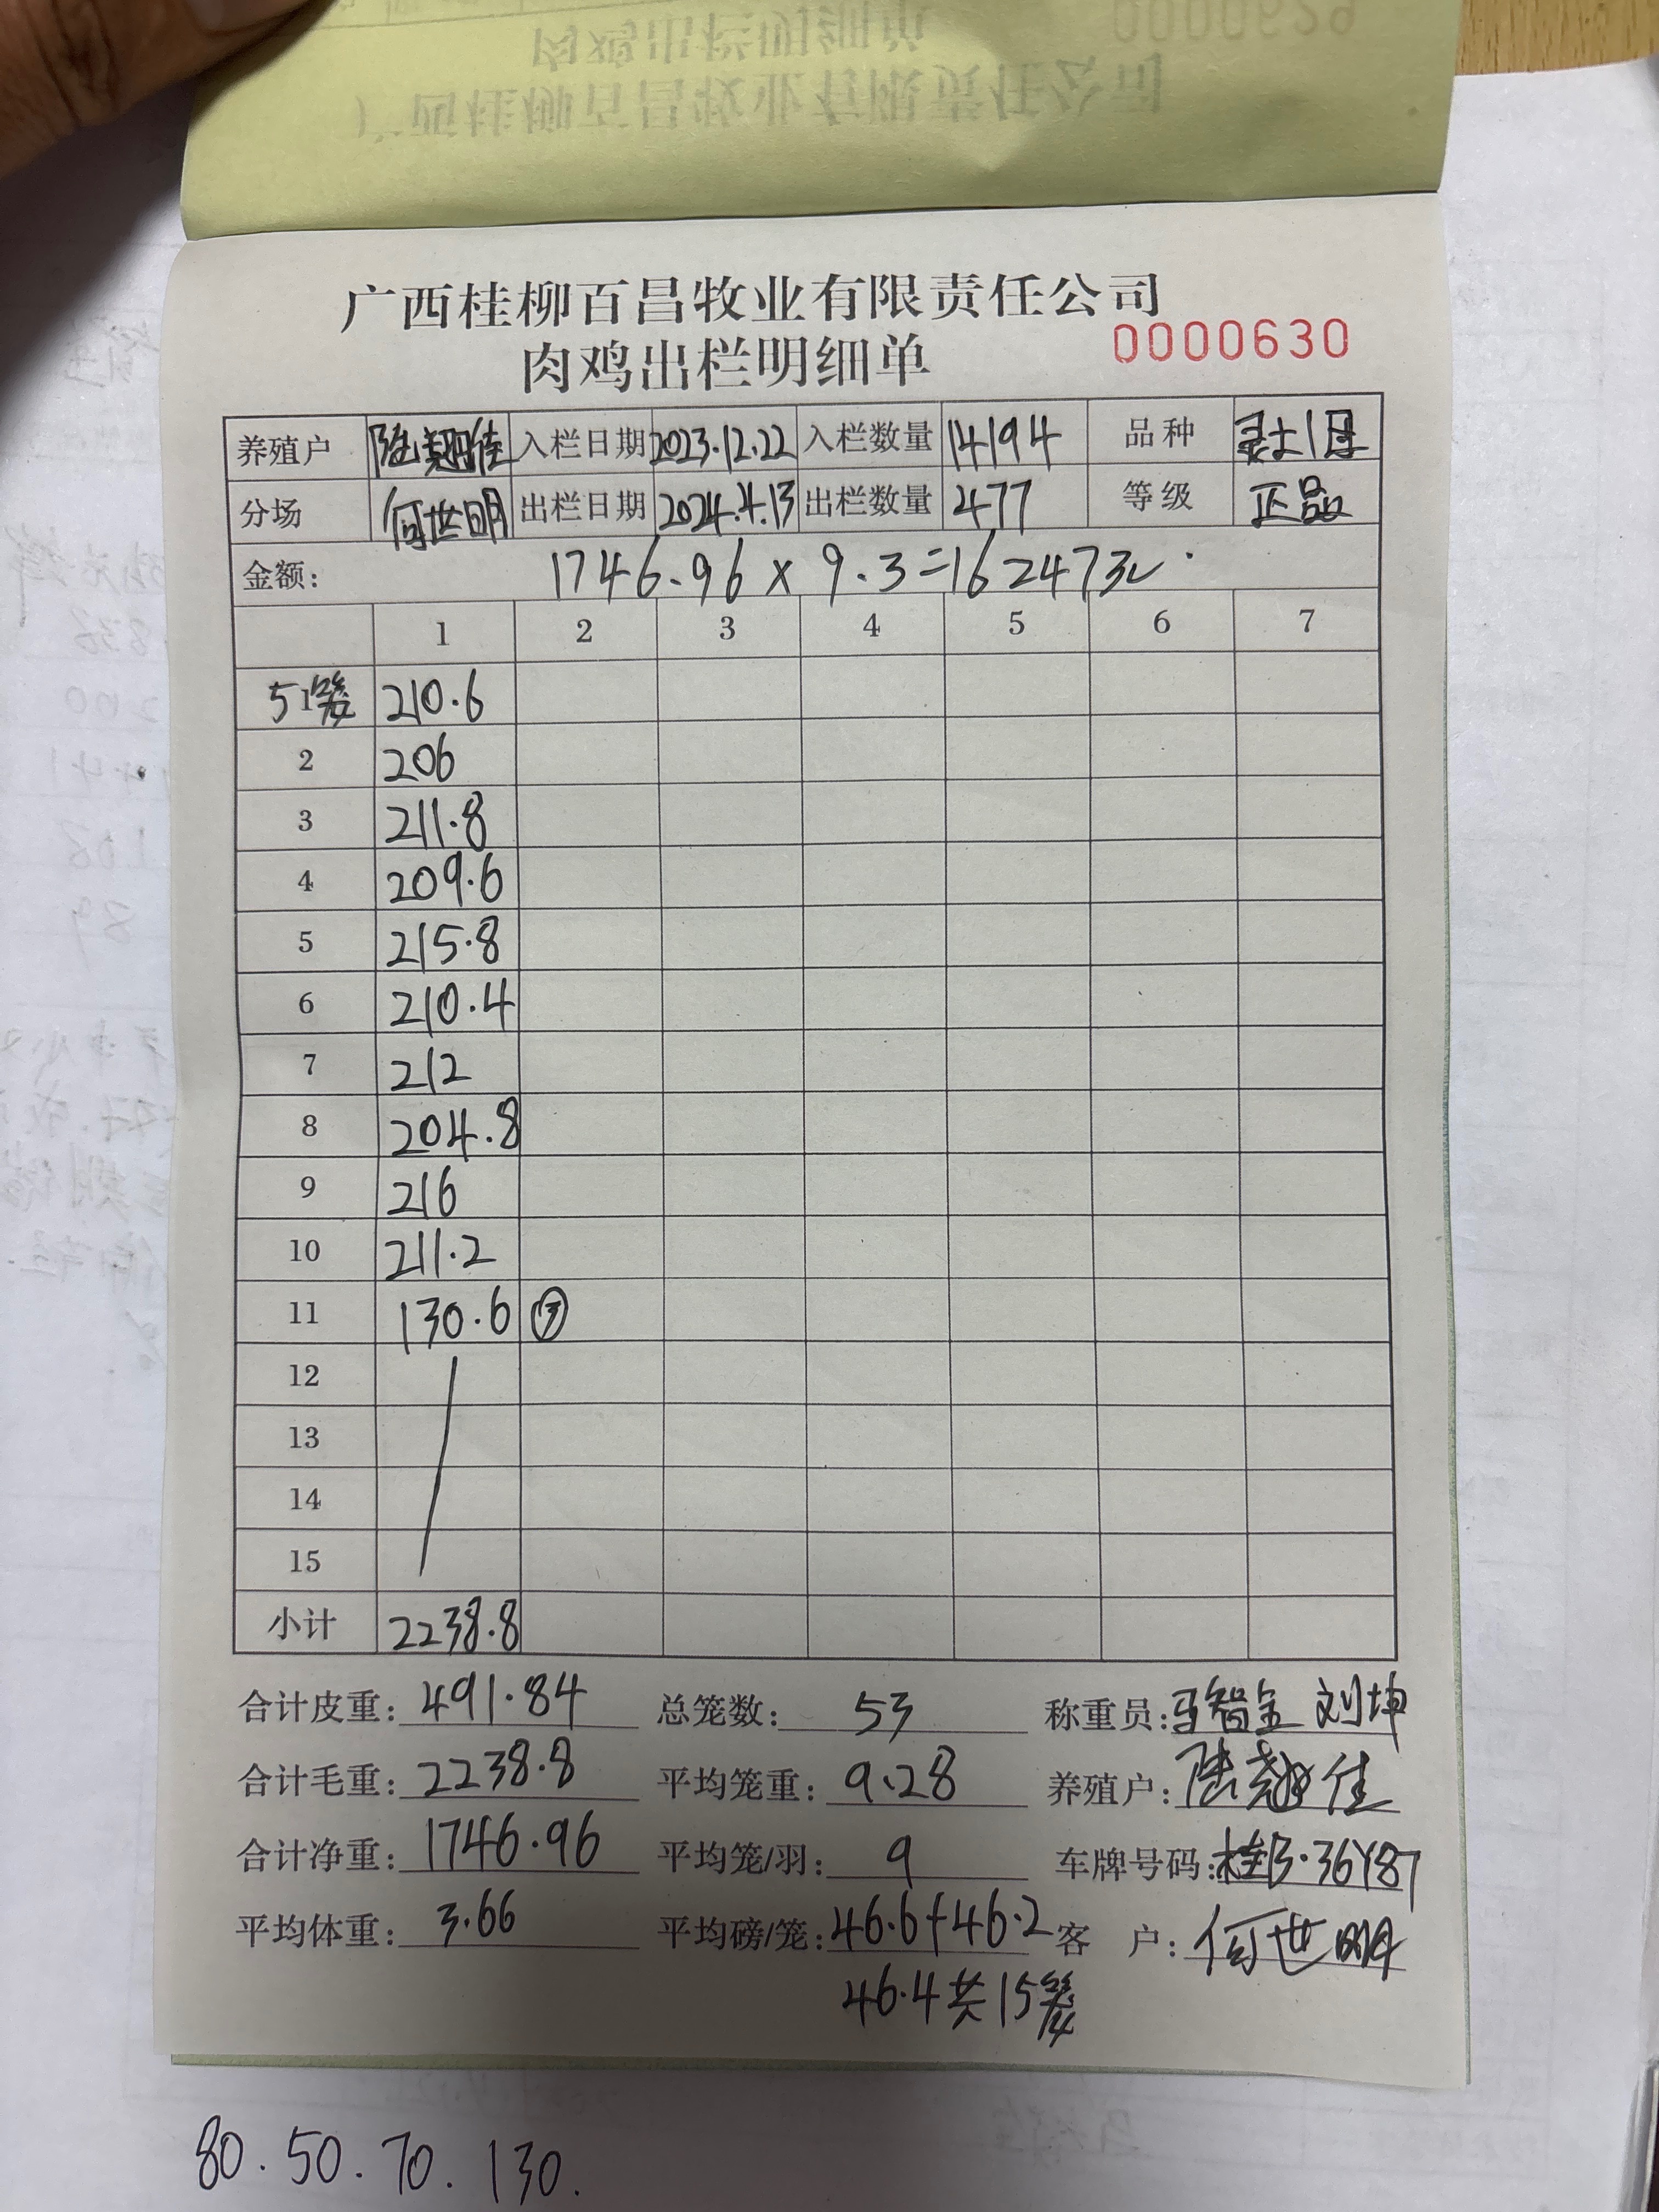 广西桂柳百昌牧业有限责任公司
肉鸡出栏明细单
0000630
养殖户 陆翘佳 入栏日期 2023.12.22 入栏数量 14194 品种 灵土1母
分场 何世明 出栏日期 2024.4.13 出栏数量 477 等级 正品
金额: 1746.96 x 9.3=16247元
1 2 3 4 5 6 7
5笼 210.6
2 206
3 211.8
4 209.6
5 215.8
6 210.4
7 212
8 204.8
9 216
10 211.2
11 130.6 ③
12
13
14
15
小计 2238.8
合计皮重: 491.84 总笼数: 53 称重员: 刘坤
合计毛重: 2238.8 平均笼重: 9.28 养殖户: 陆翘佳
合计净重: 1746.96 平均笼/羽: 9 车牌号码: 桂B·36Y87
平均体重: 3.66 平均磅/笼: 46.6+46.2 客户: 何世明
46.4共15笼
80.50.70.130.